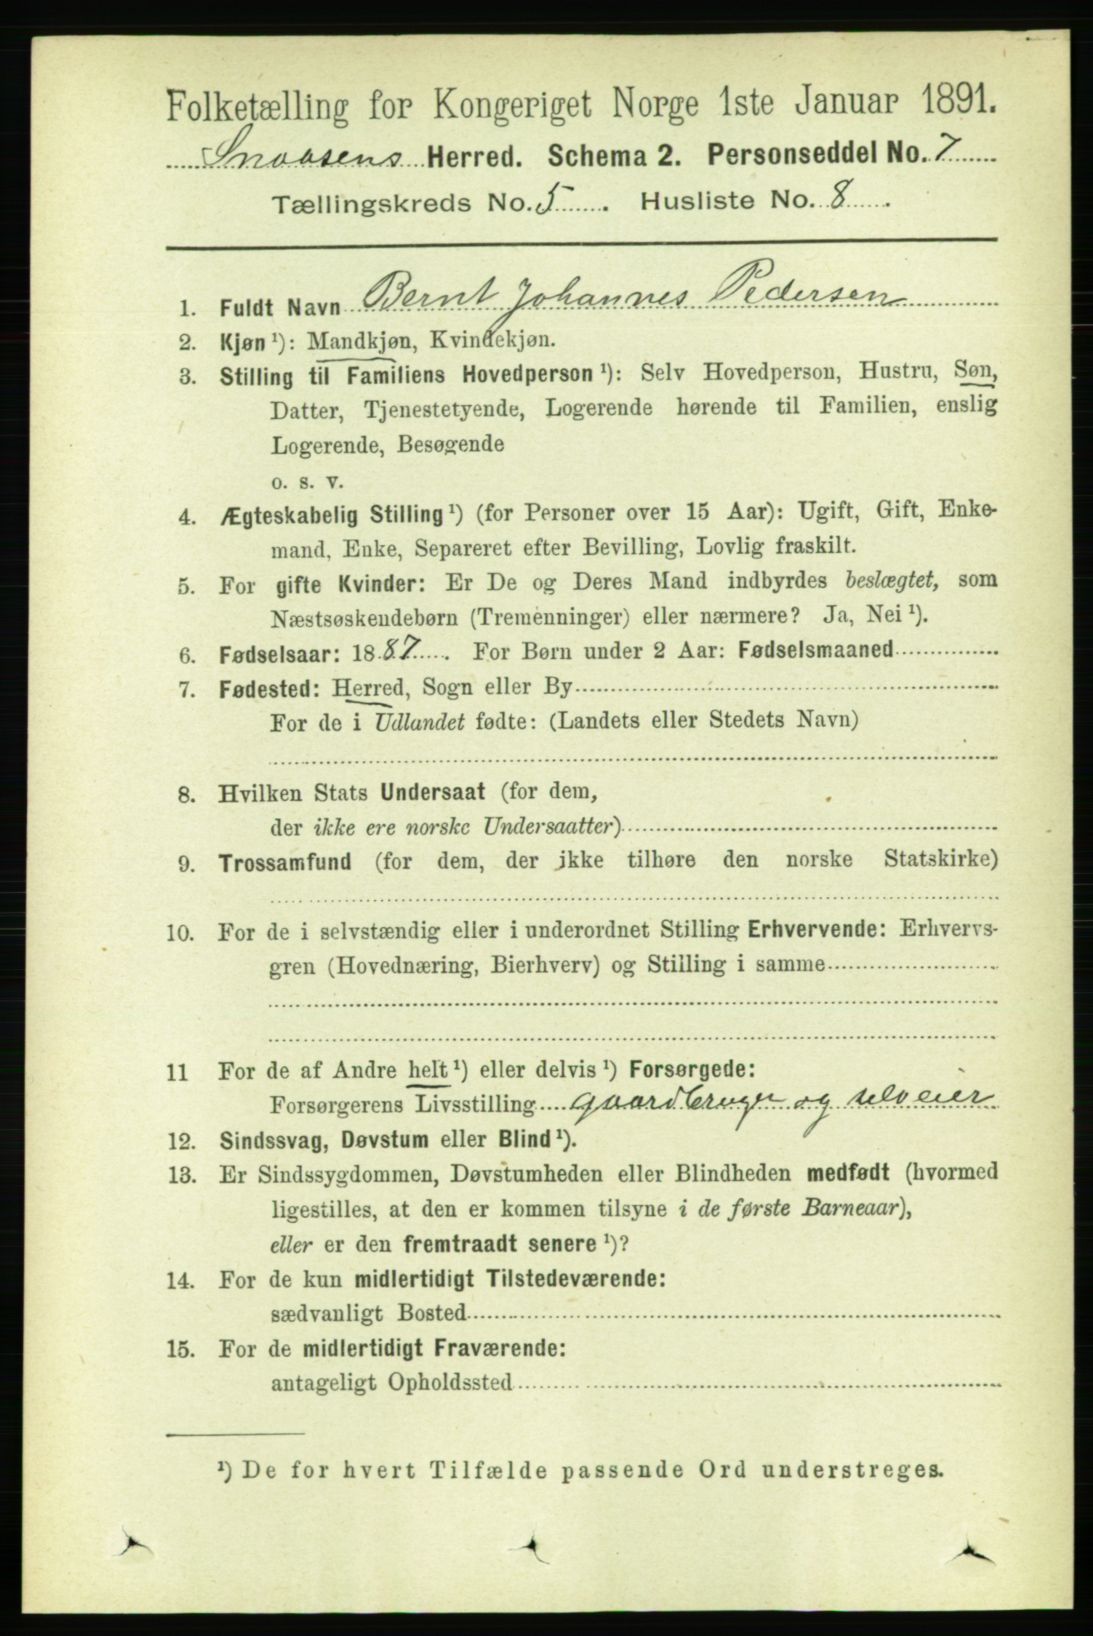 Folketælling for Kongeriget Norge 1ste Januar 1891.
Snaasens Herred. Schema 2. Personseddel No. 7
Tællingskreds No. 5. Husliste No. 8.
1. Fuldt Navn Bernt Johannes Pedersen
2. Kjøn ¹): Mandkjøn, Kvindekjøn.
3. Stilling til Familiens Hovedperson ¹): Selv Hovedperson, Hustru, Søn,
Datter, Tjenestetyende, Logerende hørende til Familien, enslig
Logerende, Besøgende
o. s. v.
4. Ægteskabelig Stilling ¹) (for Personer over 15 Aar): Ugift, Gift, Enke-
mand, Enke, Separeret efter Bevilling, Lovlig fraskilt.
5. For gifte Kvinder: Er De og Deres Mand indbyrdes beslægtet, som
Næstsøskendebørn (Tremenninger) eller nærmere? Ja, Nei ¹).
6. Fødselsaar: 1887. For Børn under 2 Aar: Fødselsmaaned
7. Fødested: Herred, Sogn eller By
For de i Udlandet fødte: (Landets eller Stedets Navn)
8. Hvilken Stats Undersaat (for dem,
der ikke ere norske Undersaatter)
9. Trossamfund (for dem, der ikke tilhøre den norske Statskirke)
10. For de i selvstændig eller i underordnet Stilling Erhvervende: Erhvervs-
gren (Hovednæring, Bierhverv) og Stilling i samme
11 For de af Andre helt ¹) eller delvis ¹) Forsørgede:
Forsørgerens Livsstilling gaardbruger og selveier
12. Sindssvag, Døvstum eller Blind ¹).
13. Er Sindssygdommen, Døvstumheden eller Blindheden medfødt (hvormed
ligestilles, at den er kommen tilsyne i de første Barneaar),
eller er den fremtraadt senere ¹)?
14. For de kun midlertidigt Tilstedeværende:
sædvanligt Bosted
15. For de midlertidigt Fraværende:
antageligt Opholdssted
¹) De for hvert Tilfælde passende Ord understreges.